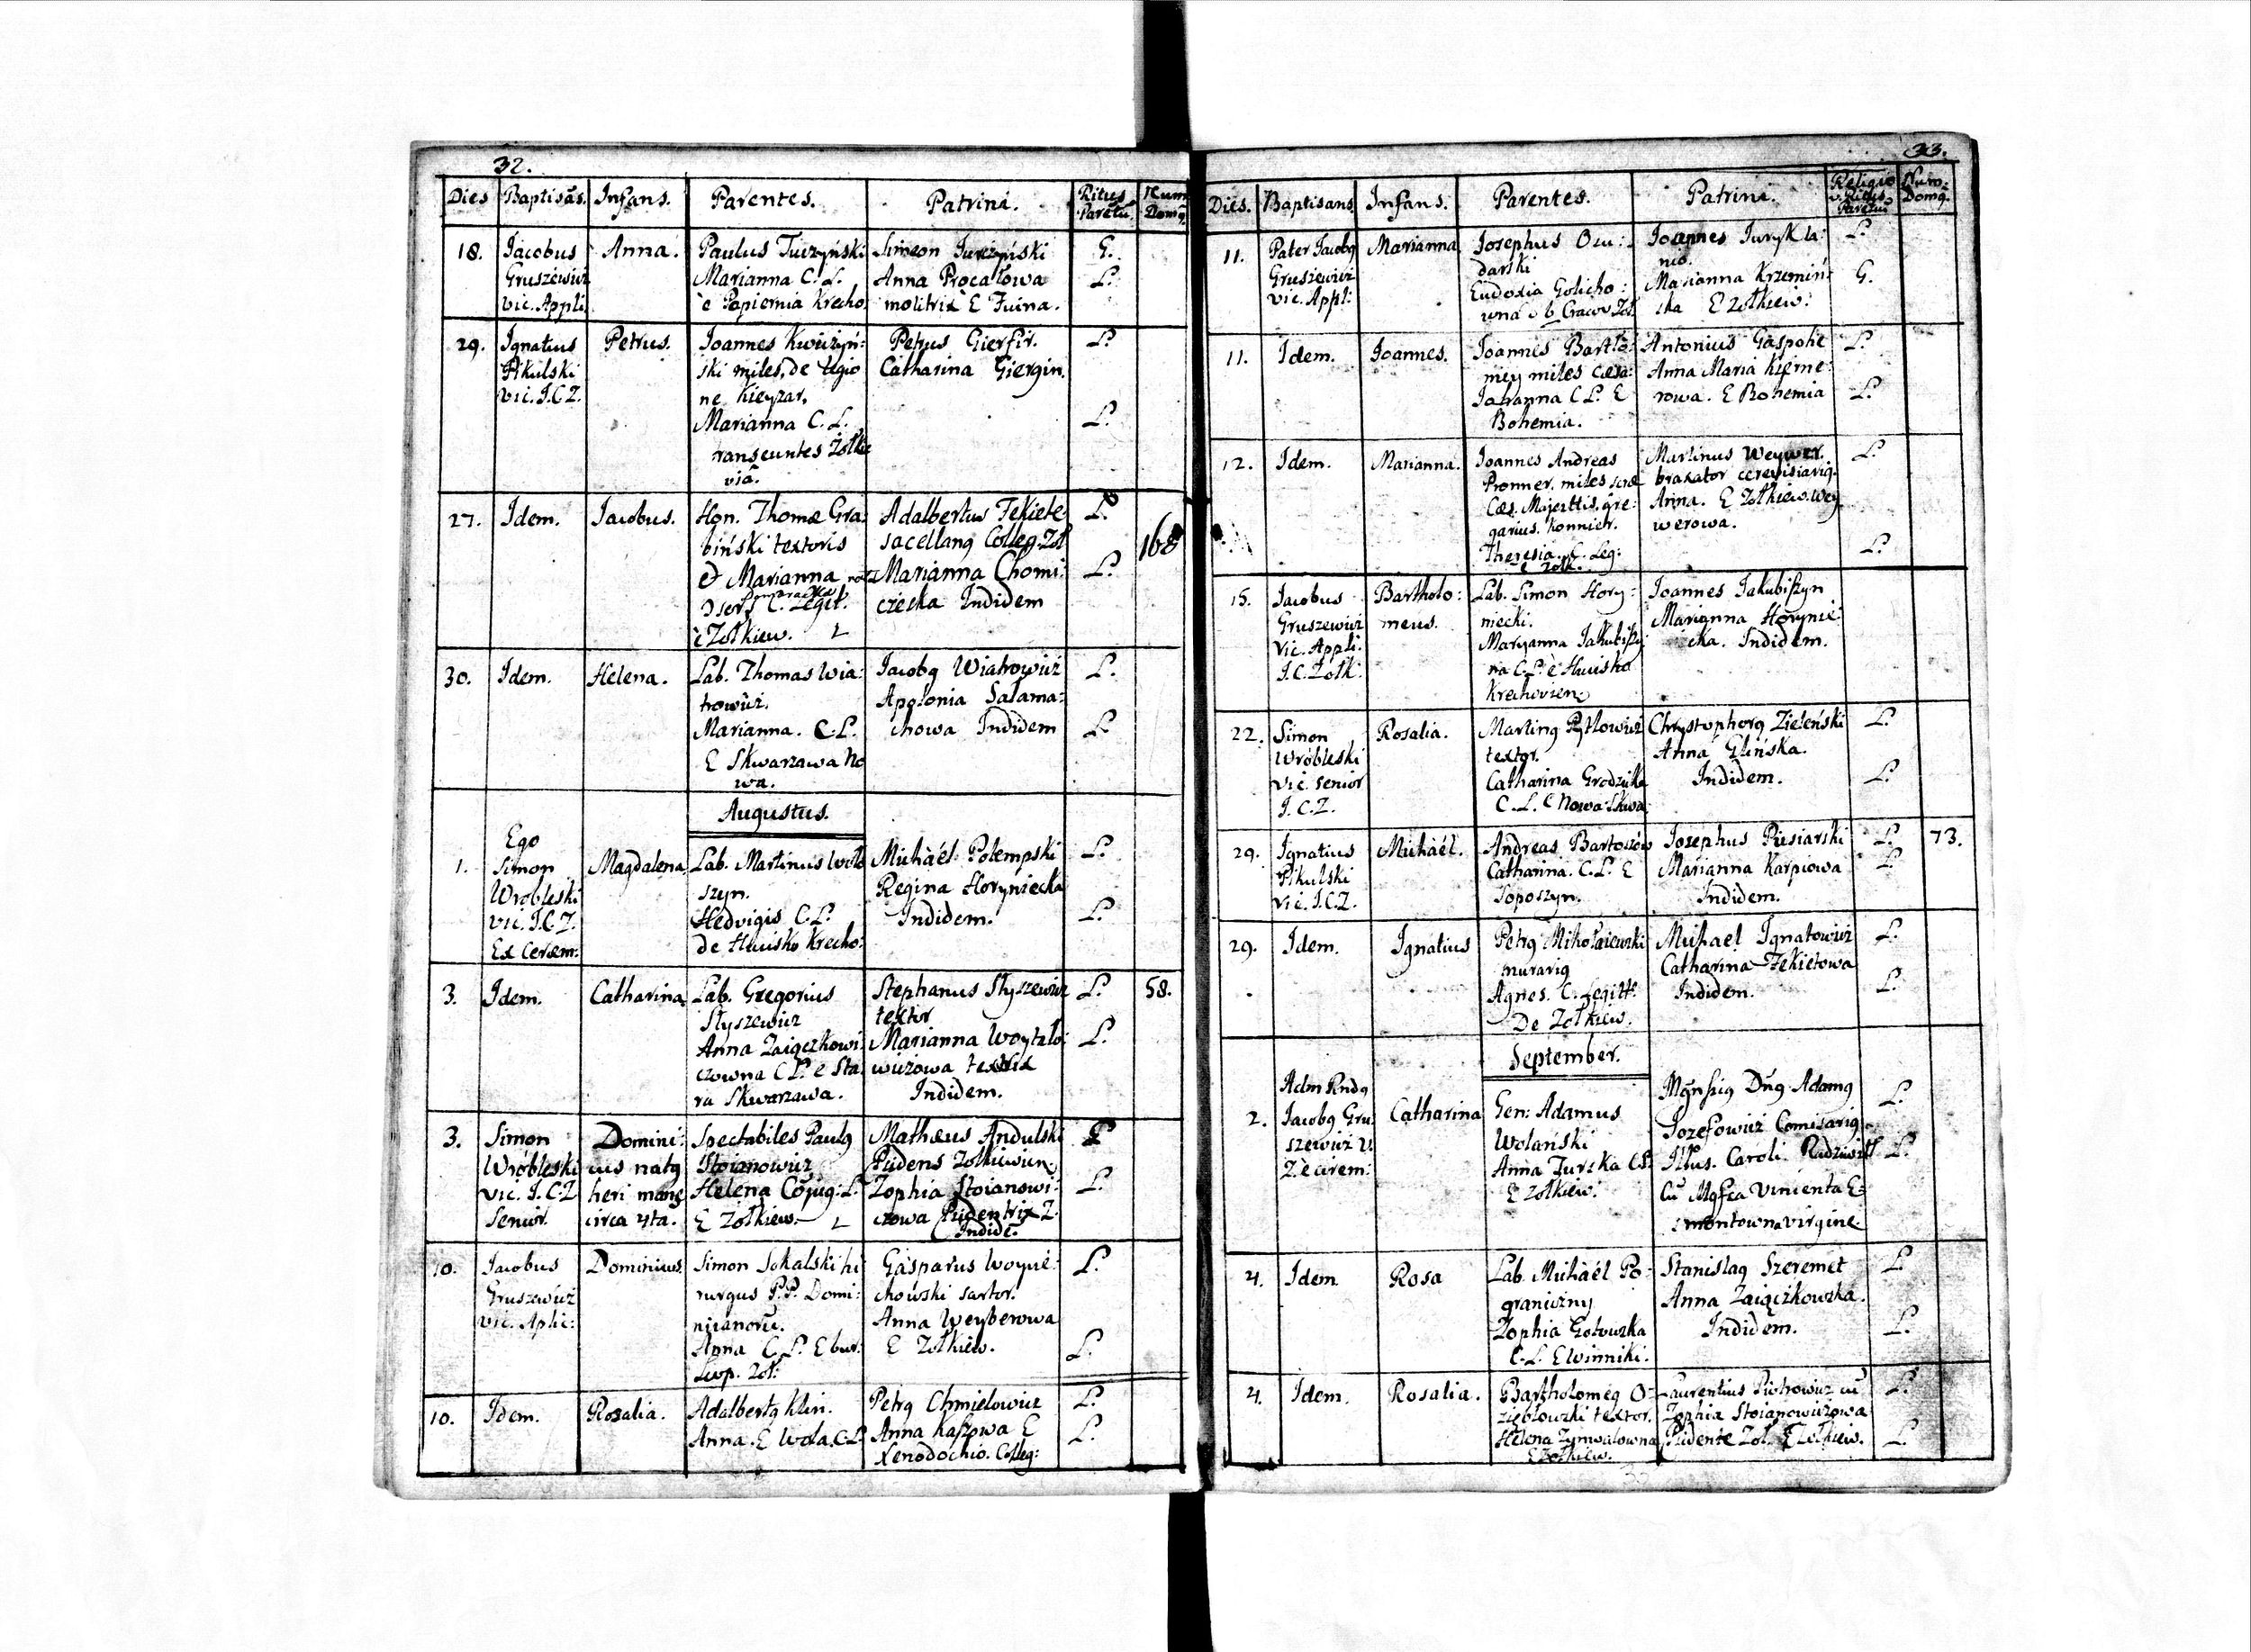 32.
Dies Baptisās. Infans. Parentes. Patrini. Ritus Parētū. Num: Domq.
18. Jacobus Gruszewicz vic. Appli.
Anna.
Paulus Turzyński
Marianna C. L.
è Papiernia Krecho.
Simeon Jurczyński
Anna Procałowa
molitrix E Fuina.
G.
L.
29. Ignatius
Pikulski
vic. J.C.Z.
Petrus.
Joannes Kwiczyń:
ski miles, de legio
ne Kieyzar.
Marianna C. L.
transeuntes Zołkie
viā.
Petrus Gierfir.
Catharina Giergin.
L.
L.
27. Idem.
Jacobus.
Hon. Thomæ Gra:
biński textoris
et Marianna
C. Legit.
è Zołkiew. L
Adalbertus Fekiete
sacellanq Colleg. Zoł
Marianna Chomi:
czecka Indidem
L.
L.
168
30. Idem.
Helena.
Lab. Thomas Wia:
trowicz.
Marianna. C.L.
E Skwarzawa No
wa.
Jacobq Wiatrowicz
Apolonia Salama:
chowa Indidem
L.
L.
Augustus.
1. Ego
Simon
Wróbleski
vic. J.C.Z.
Ex Cerem:
Magdalena
Lab. Martinus Woło
szyn.
Hedvigis C.L.
de Hucisko Krecho:
Michaël Potempski
Regina Horyniecka
Indidem.
L.
L.
3. Idem.
Catharina
Lab. Gregorius
Słyszewicz
Anna Zaięczkowi:
czowna C L. è Sta
ra Skwarzawa.
Stephanus Słyszewicz
textor
Marianna Woytalo:
wiczowa textrix
Indidem.
L.
L.
58.
3. Simon
Wróbleski
vic. J.C.Z
Senior.
Domini:
cus natq
heri mane
circa 4ta.
Spectabiles Paulq
Stoianowicz
Helena Cojug: L.
E Zołkiew. L
Mathæus Andulski
Pridens Zołkiewien
Zophia Stoianowi:
czowa Pridentrix Z.
Indidē.
L
L.
10. Jacobus
Gruszewicz
vic. Aplic:
Dominicus.
Simon Sokalski hi
rurgus P.P. Domi:
nicanorū.
Anna C. L. E bur.
Leop. Zoł:
Gasparus Woycie:
chowski sartor.
Anna Weyberowa
E Zołkiew.
L.
L.
10. Idem.
Rosalia.
Adalbertq Klin.
Anna. E Wola. C.L
Petrq Chmielowicz
Anna Kaszowa E
Xenodochio. Colleg:
L.
L.
33.
Dies. Baptisans Infans. Parentes. Patrini. Religio v. Ritus Parētū Num: Domq.
11. Pater Jacobq
Gruszewicz
vic. Appl:
Marianna
Josephus Ozu:
darski
Eudoxia Golicho:
wna
Joannes Juryk la:
nio.
Marianna Krzemiń:
ska E Zołkiew.
L.
G.
11. Idem.
Joannes.
Joannes Bartlo:
mey miles Cæsa:
Johanna C L. E
Bohemia.
Antonius Gaspohe
Anna Maria Kierne:
rowa. E Bohemia
L.
L.
12. Idem.
Marianna.
Joannes Andreas
Pronner. miles
Cæs. Majesttis. gre:
garius. Konnich.
Theresia. C. Leg:
è Zołk.
Martinus Weywer.
braxator cerevisiariq.
Anna. E Zołkiew. Wey
werowa.
L.
L.
15. Jacobus
Gruszewicz
vic. Appli.
J.C. Zołk:
Bartholo:
meus.
Lab. Simon Hory:
niecki.
Maryanna Jakubiszy
na C.L. è Hucisko
Krechovien:
Joannes Jakubiszyn
Marianna Horynie:
cka. Indidem.
22. Simon
Wróbleski
vic. senior
J.C.Z.
Rosalia.
Martinq Pytlowicz
textor.
Catharina Grodzicka
C. L. è Nowa Skwa:
Chrystophorq Zieleński
Anna Glińska.
Indidem.
L.
L.
29. Ignatius
Pikulski
vic. J.C.Z.
Michaël.
Andreas Bartoszów
Catharina. C.L. E
Soposzyn.
Josephus Piesiarski
Marianna Karpiowa
Indidem.
L.
L.
73.
29. Idem.
Ignatius
Petrq Mikołaiewski
murariq
Agnes. C. Legitt.
De Zołkiew.
Michael Ignatowicz
Catharina Fekietowa
Indidem.
L.
L.
September.
2. Adm Rndq
Jacobq Gru
szewicz V.
Z. è cirem:
Catharina
Gen: Adamus
Wolański
Anna Turska C.L.
E Zołkiew.
Mgnficq Dnq Adamq
Jozefowicz Comisariq
Illus. Caroli Radziwiłł
Cū Mgfca Vincenta E:
smontowna virgine.
L.
L.
4. Idem
Rosa
Lab. Michaël Po:
graniczny
Zophia Gotowzka
C.L. E Winniki.
Stanislaq Szeremet
Anna Zaiączkowska.
Indidem.
L
L.
4. Idem.
Rosalia.
Bartholomeq O:
zięblowzki textor.
Helena Zynwalowna
E Zołkiew.
Laurentius Piotrowicz cū
Zophia Stoianowiczowa
Pridente Zoł. E Zołkiew.
L.
L.